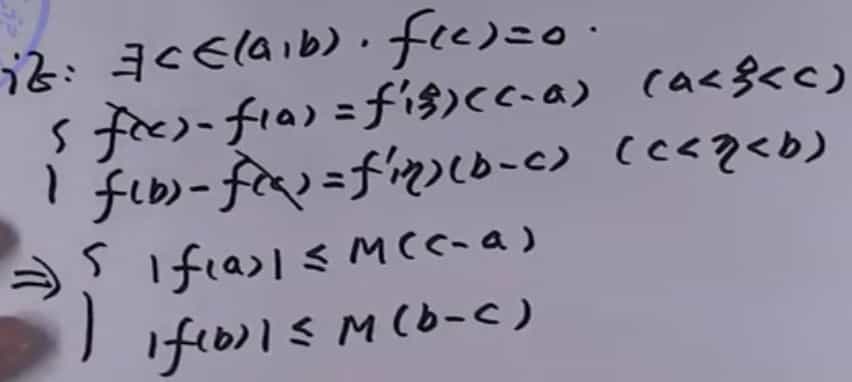 证: ∃c∈(a,b). f(c)=0.
{ f(c)-f(a)=f'(ξ)(c-a) (a<ξ<c)
f(b)-f(c)=f'(η)(b-c) (c<η<b)
⇒ { |f(a)| ≤ M(c-a)
|f(b)| ≤ M(b-c)